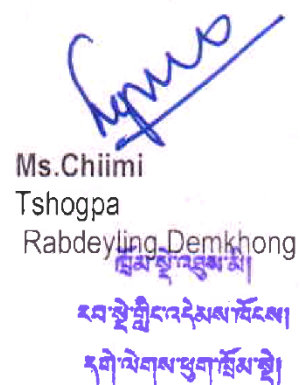 Ms.Chiimi
Tshogpa
Rabdeyling Demkhong
ཁྲོམ་སྡེ་འཐུས་མི།
རབ་སྡེ་གླིང་འདེམས་ཁོངས།
དགེ་ལེགས་ཕུག་ཁྲོམ་སྡེ།